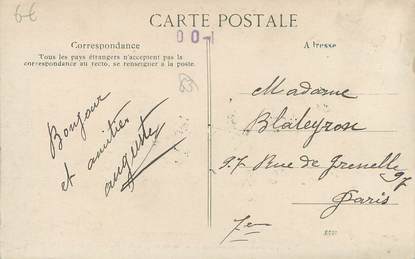 6€
CARTE POSTALE
00-1
Correspondance
Adresse
Tous les pays étrangers n'acceptent pas la
correspondance au recto, se renseigner à la poste.
Bonjour
et amitiés
auguste
Madame
Blaleyron
97 Rue de Grenelle 97
Paris
7e